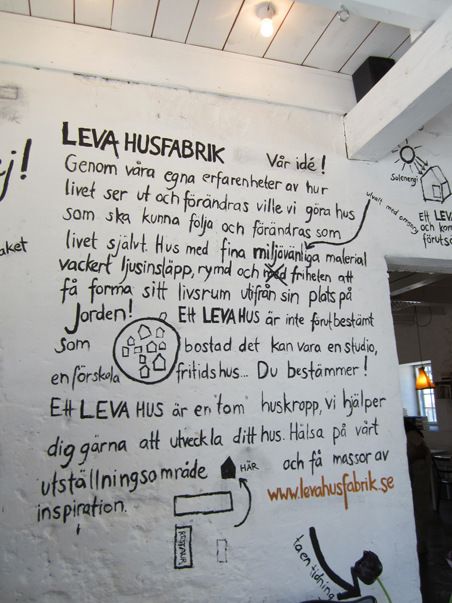 LEVA HUSFABRIK Vår idé!
Genom våra egna erfarenheter av hur
livet ser ut och förändras ville vi göra hus
som ska kunna följa och förändras som
livet självt. Hus med fina miljövänliga material
vackert ljusinsläpp, rymd och med friheten att
få forma sitt livsrum utifrån sin plats på
Jorden! Ett LEVA HUS är inte förutbestämt
som bostad det kan vara en studio,
en förskola fritidshus... Du bestämmer!
Ett LEVA HUS är en "tom" huskropp, vi hjälper
dig gärna att utveckla ditt hus. Hälsa på vårt
utställningsområde HÄR och få massor av
inspiration. www.levahusfabrik.se
ej!
aket
Solenergi
utvalt med omsorg
Ett LEVA
och kon
förutsä
ta en tidning